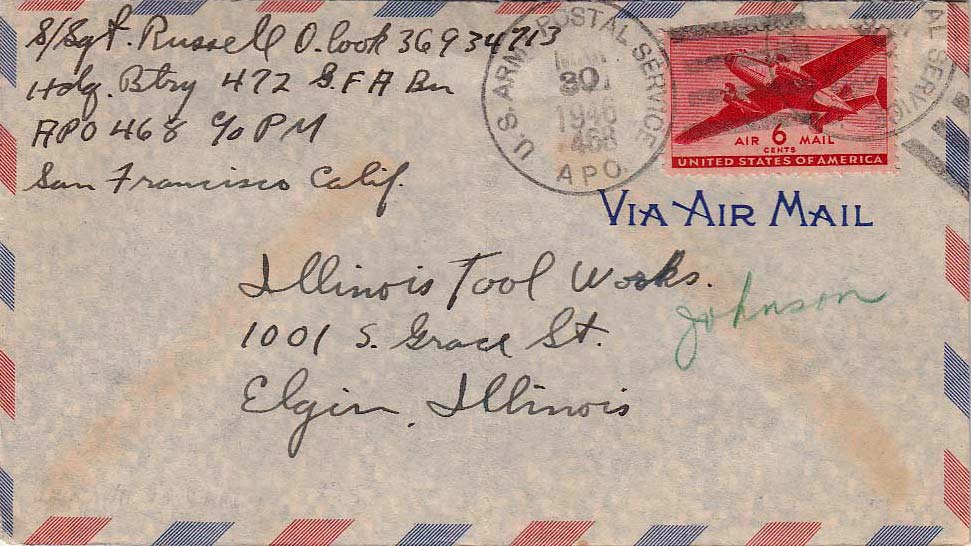 S/Sgt. Russell O. Cook 36934713
Hdq. Btry 472 G.F A Bn
APO 468 c/o PM
San Francisco Calif.
U.S. ARMY POSTAL SERVICE
30
1946
468
APO.
AIR 6 MAIL
CENTS
UNITED STATES OF AMERICA
AL SERVICE
VIA AIR MAIL
Illinois Tool Works.
1001 S. Grace St.
Elgin, Illinois
Johnson